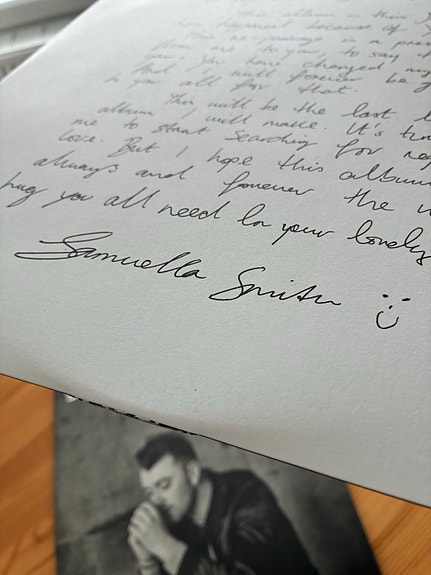 This album — this
happened because of
this message is a
from me to you, to say
you. You have changed my
And I will forever be
to you all for that.
This will be the last
album I will make. It's
me to start searching for
love. But I hope this album
always and forever the
hug you all need in your lonely
Samuella Smith :)